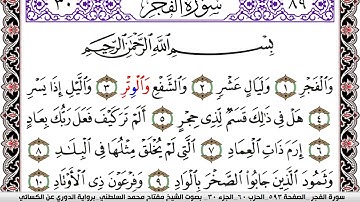 ٣٠ سُورَةُ الفَجْرِ ٨٩
بِسْمِ اللَّهِ الرَّحْمَٰنِ الرَّحِيمِ
وَالْفَجْرِ ١ وَلَيَالٍ عَشْرٍ ٢ وَالشَّفْعِ وَالْوِتْرِ ٣ وَالَّيْلِ إِذَا يَسْرِ
٤ هَلْ فِي ذَٰلِكَ قَسَمٌ لِّذِي حِجْرٍ ٥ أَلَمْ تَرَ كَيْفَ فَعَلَ رَبُّكَ بِعَادٍ
٦ إِرَمَ ذَاتِ الْعِمَادِ ٧ الَّتِي لَمْ يُخْلَقْ مِثْلُهَا فِي الْبِلَادِ ٨
وَثَمُودَ الَّذِينَ جَابُوا الصَّخْرَ بِالْوَادِ ٩ وَفِرْعَوْنَ ذِي الْأَوْتَادِ ١٠
سورة الفجر الصفحة ٥٩٣ الحزب ٦٠ الجزء ٣٠ بصوت الشيخ مفتاح محمد السلطني برواية الدوري عن الكسائي